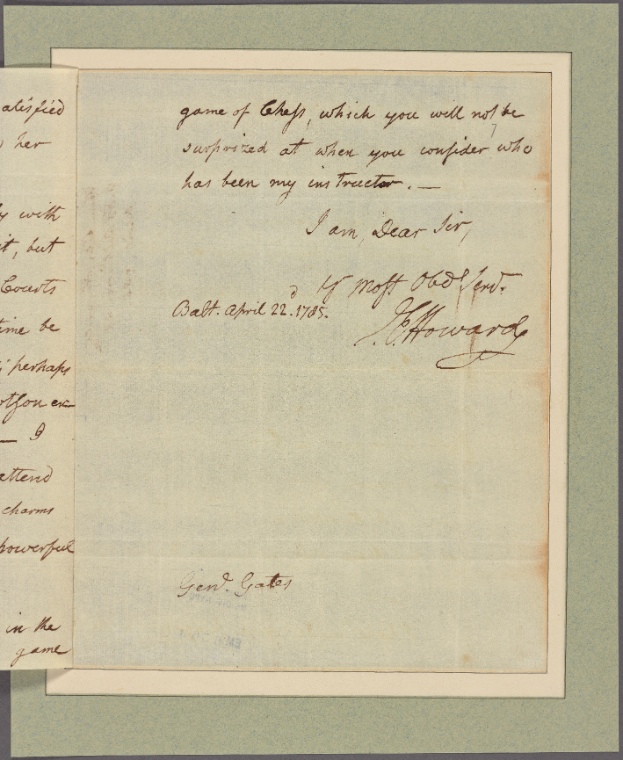 atisfied
her
with
it, but
Courts
time be
perhaps
otson ex-
— I
attend
charms
powerful
in the
game
game of Chess, which you will not be
surprized at when you consider who
has been my instructor. —
I am, Dear Sir,
Yr. Most Obdt. Servt.
Balt. April 22.d 1785.
J. E. Howard
Genl. Gates